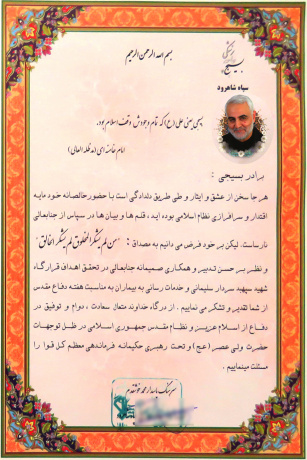 بسم الله الرحمن الرحیم
بسیج
سپاه شاهرود
بسیجی یعنی علی (ع) که تمام وجودش وقف اسلام بود.
امام خامنه ای (مدظله العالی)
برادر بسیجی :
هر جا سخن از عشق و ایثار و طی طریق دلدادگی است با حضور خالصانه خود مایه
اقتدار و سرافرازی نظام اسلامی بوده اید، قلم ها و بیان ها در سپاس از جنابعالی
نارساست. لیکن بر خود فرض می دانیم به مصداق : "من لم یشکر المخلوق لم یشکر الخالق"
و نظر بر حسن تدبیر و همکاری صمیمانه جنابعالی در تحقق اهداف قرارگاه
شهید سپهبد سردار سلیمانی و خدمات رسانی به بیماران به مناسبت هفته دفاع مقدس
از شما تقدیر و تشکر می نماییم . از درگاه خداوند متعال سعادت ، دوام و توفیق در
دفاع از اسلام عزیز و نظام مقدس جمهوری اسلامی در ظل توجهات
حضرت ولی عصر (عج) و تحت رهبری حکیمانه فرماندهی معظم کل قوا را
مسئلت مینماییم .
سرهنگ پاسدار محمد خوشقدم